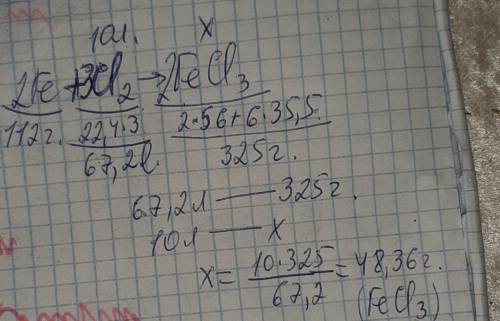 10л. x
2Fe + 3Cl₂ → 2FeCl₃
112г. 22,4·3 2·56+6·35,5.
67,2л. 325г.
67,2л — 325г.
10л — x
x = 10·325 / 67,2 = 48,36г.
(FeCl₃)